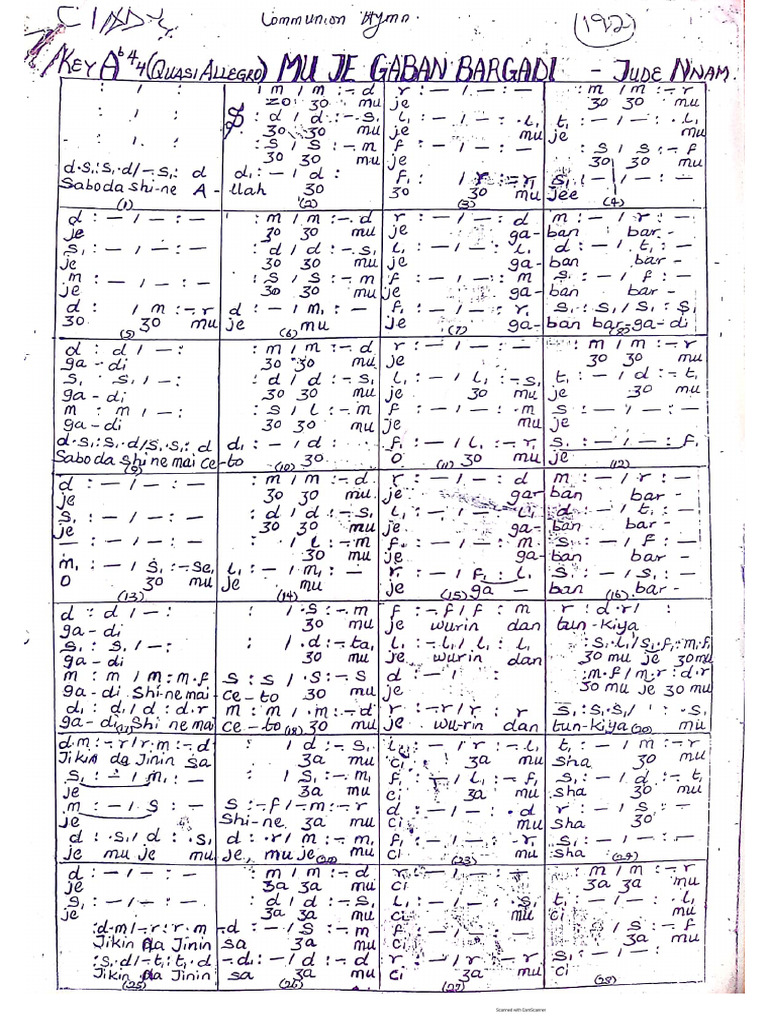 CINDY Communion Hymn. (192)
KEY Ab 4/4 (QUASI ALLEGRO) MU JE GABAN BARGADI - JUDE NNAM.
: / : | : m / m :- d | r : - / - : | : m / m :- r
zo 30 mu | je | 30 30 mu
: / : | S : d / d :- s, | l, : - / - : . l, | t, : - / - : . l,
30 30 mu | je mu | je mu
: / : | : s / s :- m | : s / s :- f
30 30 mu | je | 30 30 mu
d.s,:s,.d/-.s,: d | d, : - / d : | f, : / r :- r, | s, : - / - : -
Saboda shi-ne A - | llah 30 | 30 30 mu | jee
(1) (2) (3) (4)
d : - / - : - | : m / m :-. d | r : - / - : d | m : - / r : -
je | 30 30 mu | je ga- | ban bar -
s, : - / - : - | : d / d :- s, | l, : - / - : l, | d : - / t, : -
je | 30 30 mu | je ga- | ban bar -
m : - / - : - | : s / s :- m | f : - / - : m | s, : - / f : -
je | 30 30 mu | je ga- | ban bar -
d : / m :- r | d : - / m, : - | f, : - / - : r, | s, : s, / s, : s,
30 30 mu | je mu | je ga- | ban bar-ga-di
(5) (6) (7) (8)
d : d / - : | : m / m :- d | r : - / - : - | : m / m :- r
ga - di | 30 30 mu | je | 30 30 mu
s, s, / - : | : d / d :- s, | l, : - / l, :- s, | t, : - / d :- t,
ga - di | 30 30 mu | je 30 mu | je 30 mu
m : m / - : | : s / l :- m | f : - / - : . m | s : - / - : -
ga - di | 30 30 mu | je mu | je
d.s,:s,.d/s,.s,: d | d, : - / d : | f, : - / l, :- r, | s, : - / - : f,
Saboda shi ne mai ce | -to 30 | 0 30 mu | je
(9) (10) (11) (12)
d : - / - : - | : m / m :- d | r : - / - : d | m : - / r : -
je | 30 30 mu | je gar | ban bar -
s, : - / - : - | : d / d :- s, | l, : - / - : l, | d : - / t, : -
je | 30 30 mu | je ga- | ban bar -
- : - / - : - | : / l :- m | f : - / - : m | s : - / f : -
30 mu | je ga- | ban bar -
m, : - / s, :- se, | l, : - / m, : - | r, : - / f, : l, | s, : - / s, : -
0 30 mu | je mu | je ga - | ban bar -
(13) (14) (15) (16)
d : d / - : | : / . s :- m | f :-. f / f : m | r : d . r /
ga - di | 30 mu | je wurin dan | tun-kiya
s, : s, / - : | : / . d :- ta, | l, :-. l, / l, : l, | : s, . l, / s, . f, : m, . f,
ga - di | 30 mu | je wurin dan | 30 mu je 30 mu
m : m / m : m.f | s : s / . s :- s | d : - / : | : m.f / m.r : d.r
ga-di. Shi ne mai | ce-to 30 mu | je | 30 mu je 30 mu
d : d, / d : d.r | m : m / . m :- d | r :- r / r : r | s, : s, . s, / : . s,
ga-di, Shi ne mai | ce-to 30 mu | je wu-rin dan | tun-kiya mu
(17) (18) (20)
d.m :- r / r.m :- d | : / d :- s, | l, : - / r :- l, | t, : - / m :- r
Jikin da Jinin sa | 3a mu | ci 3a mu | Sha 30 mu
s, : - / m, : - | : / s, :- m, | f, : - / l, :- f, | s, : - / d :- t,
je | 3a mu | ci 3a mu | sha 30 mu
m : - / s : - | s :- f / - m :- r | d : - / - : . d | r : - / s : -
je | Shi-ne. 3a mu | ci mu | sha 30
d : . s, / d : . s, | d : . r / m :- m, | f, : - / - : - r, | s, : - / - : -
je mu je mu | je, mu je | ci mu | sha
(23) (24)
d : - / - : - | : m / m :- d | r : - / - : - | : m / m :- r
je | 3a 3a mu | ci | 3a 3a mu
s, : - / - : - | : d / d :- s, | l, : - / - : s, | t, : - / - : l,
je | 3a 3a mu | ci mu | ci mu
: d.m / - r : r . m | - d : - / s :- m | f : - / - : - | : / s :- f
Jikin da Jinin | sa 3a mu | ci | 3a mu
: s, . d / - t, : t, . d | - d, : - / d :- d | r : - / r :- r | s, : - / - :
Jikin da Jinin | sa 3a mu | ci 3a mu | ci
(25) (26) (27) (28)
Scanned with CamScanner